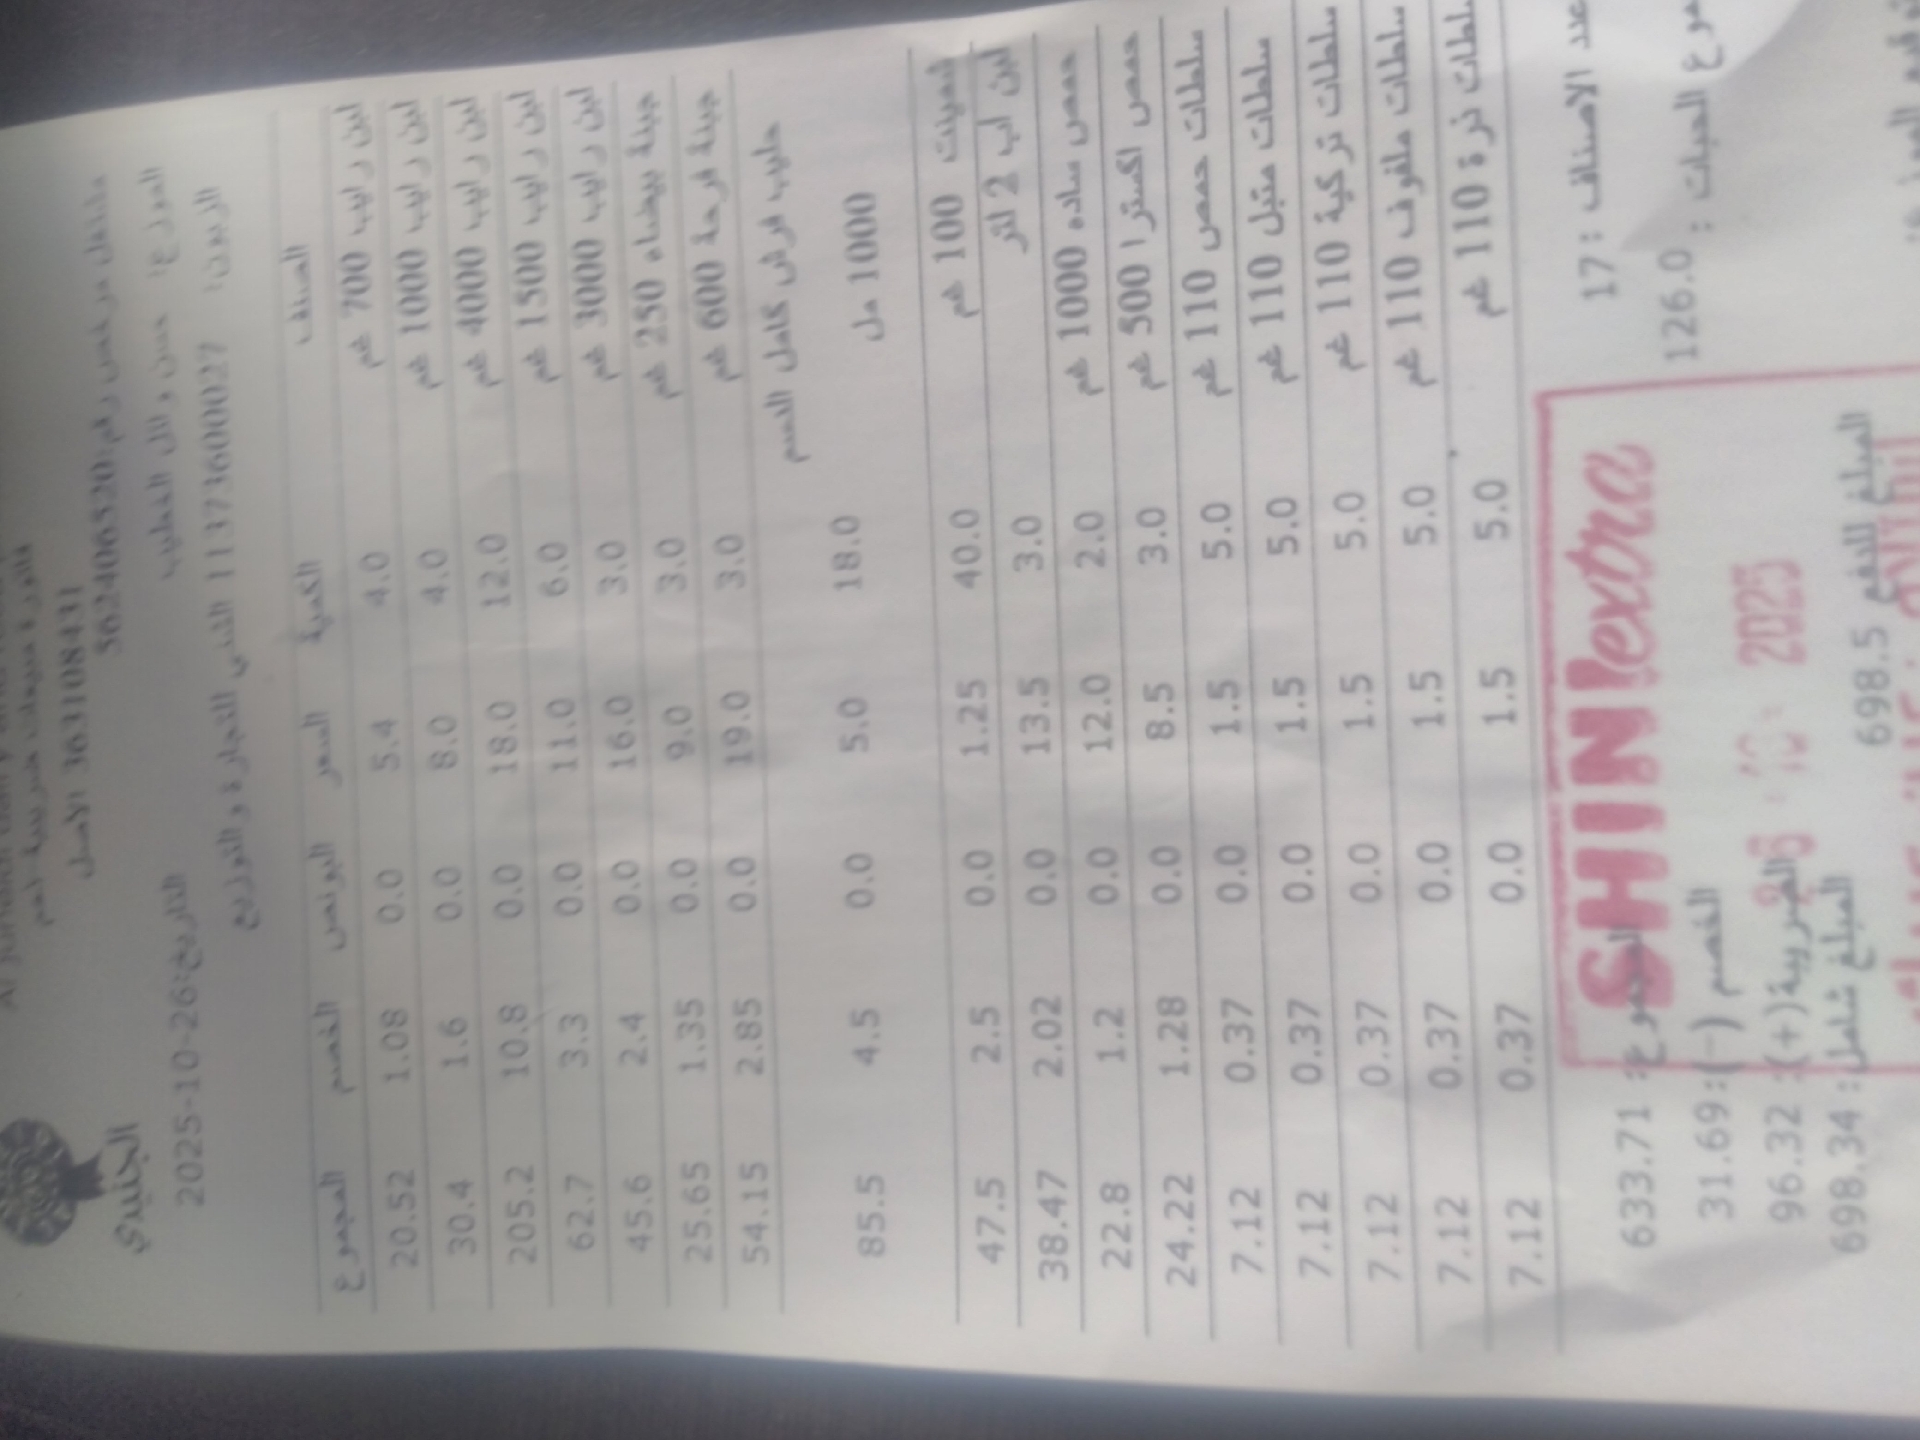 الجنيدي
فاتورة مبيعات ضريبية رقم
363108431 الاصل
مشتغل مرخص رقم:562406520
التاريخ:26-10-2025
الموزع: حسن وائل الخطيب
الزبون: 11373600027 الغني للتجارة و التوزيع
الصنف الكمية السعر البونص الخصم المجموع
لبن رايب 700 غم 4.0 5.4 0.0 1.08 20.52
لبن رايب 1000 غم 4.0 8.0 0.0 1.6 30.4
لبن رايب 4000 غم 12.0 18.0 0.0 10.8 205.2
لبن رايب 1500 غم 6.0 11.0 0.0 3.3 62.7
لبن رايب 3000 غم 3.0 16.0 0.0 2.4 45.6
جبنة بيضاء 250 غم 3.0 9.0 0.0 1.35 25.65
جبنة فرحة 600 غم 3.0 19.0 0.0 2.85 54.15
حليب فرش كامل الدسم
1000 مل 18.0 5.0 0.0 4.5 85.5
شمينت 100 غم 40.0 1.25 0.0 2.5 47.5
لبن اب 2 لتر 3.0 13.5 0.0 2.02 38.47
حمص ساده 1000 غم 2.0 12.0 0.0 1.2 22.8
حمص اكسترا 500 غم 3.0 8.5 0.0 1.28 24.22
سلطات حمص 110 غم 5.0 1.5 0.0 0.37 7.12
سلطات متبل 110 غم 5.0 1.5 0.0 0.37 7.12
سلطات تركية 110 غم 5.0 1.5 0.0 0.37 7.12
سلطات ملفوف 110 غم 5.0 1.5 0.0 0.37 7.12
سلطات ذرة 110 غم 5.0 1.5 0.0 0.37 7.12
عدد الاصناف : 17
المجموع: 633.71
SHINI extra
الحبات : 126.0
الخصم (-): 31.69
الضريبة(+): 96.32
2025
المبلغ شامل: 698.34
المبلغ للدفع 698.5